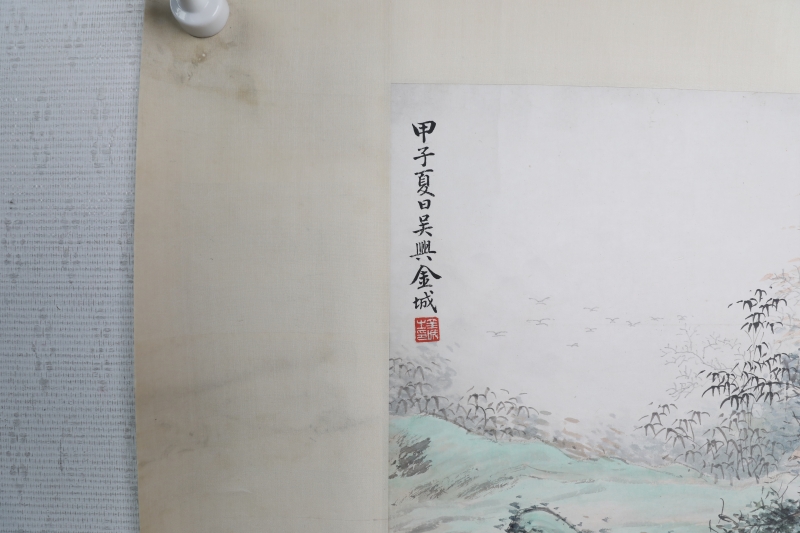 甲子夏日吴興金城